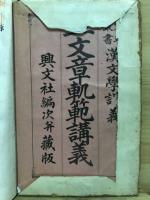 漢文學講義
文章軌範講義
興文社編次并藏版